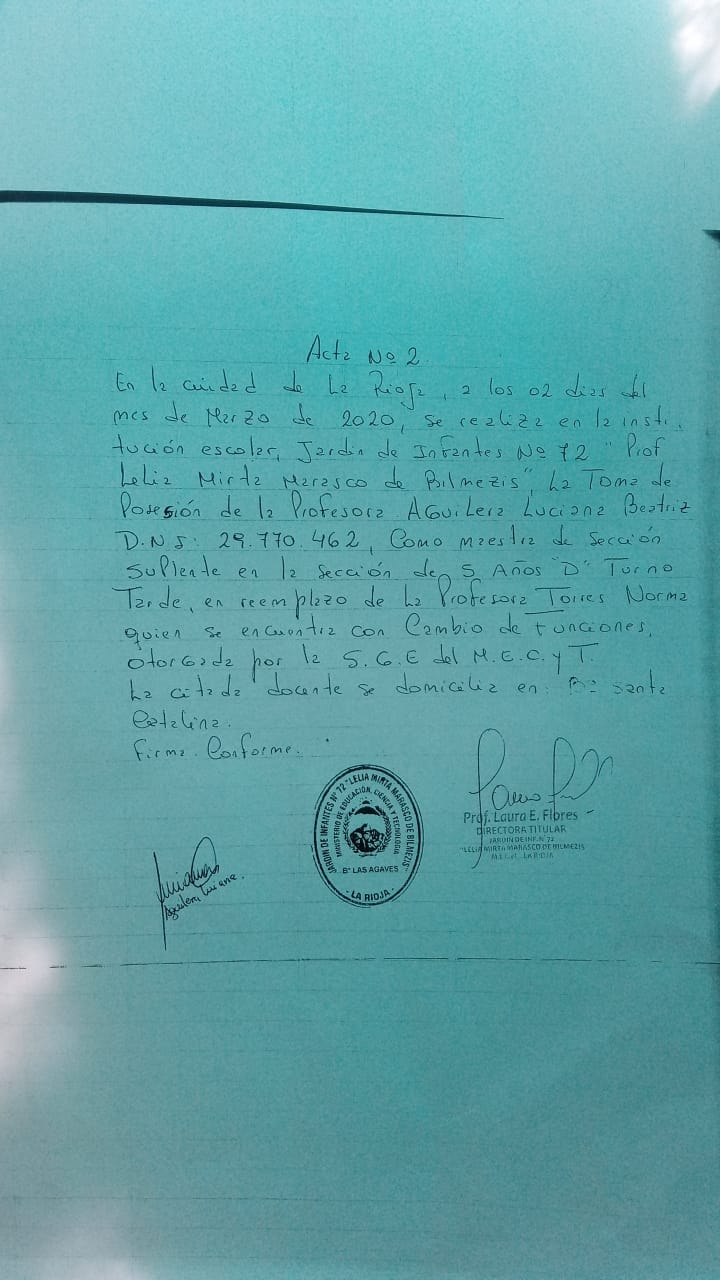 Acta Nº 2
En la cuidad de La Rioja, a los 02 dias del
mes de Marzo de 2020, se realiza en la insti.
tución escolar, Jardin de Infantes Nº 72 "Prof
Lelia Mirta Marasco de Bilmezis", La Toma de
Posesión de la Profesora AGuilera Luciana Beatriz
D.N I: 29.770.462, Como maestra de Sección
Suplente en la Sección de 5 Años "D" Turno
Tarde, en reemplazo de La Profesora Torres Norma
quien se encuentra con Cambio de Funciones,
otorGada por la S.G.E del M.E.C.y T.
La citada docente se domicilia en: Bº Santa
Catalina.
Firma Conforme.
JARDIN DE INFANTES Nº 72 "LELIA MIRTA MARASCO DE BILMEZIS"
MINISTERIO DE EDUCACIÓN, CIENCIA Y TECNOLOGIA
Bº LAS AGAVES
- LA RIOJA -
Prof. Laura E. Flores
DIRECTORA TITULAR
JARDIN DE INF. N 72
"LELIA MIRTA MARASCO DE BILMEZIS"
LA RIOJA
Aguilera Luciana.